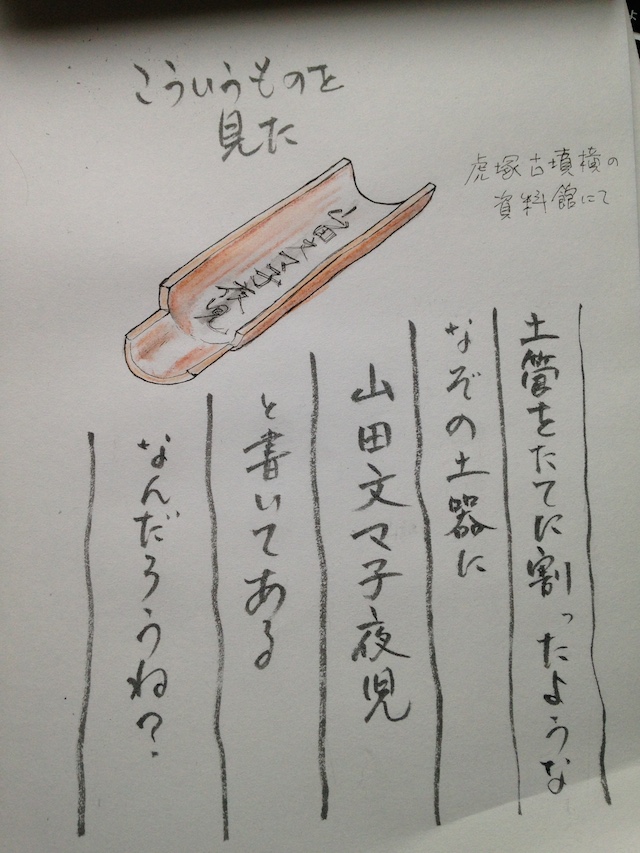 こういうものを
見た
虎塚古墳横の
資料館にて
山田文マ子夜児
土管をたてに割ったような
なぞの土器に
山田文マ子夜児
と書いてある
なんだろうね?